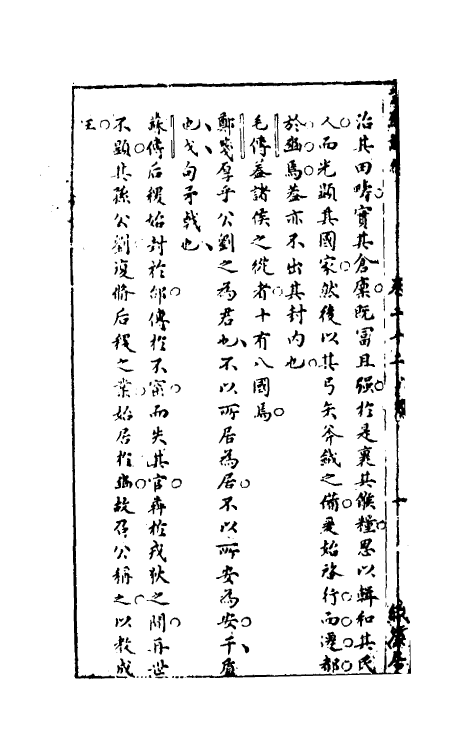 治其田疇實其倉廩既富且强於是裹其餱糧思以輯和其民
人而光顯其國家然後以其弓矢斧鉞之備爰始啓行而遷都
於豳焉蓋亦不出其封內也
毛傳蓋諸侯之從者十有八國焉
鄭箋厚乎公劉之為君也不以所居為居不以所安為安干盾
也戈句矛戟也
蘇傳后稷始封於邰傳於不窋而失其官奔於戎狄之間再世
不顯其孫公劉復脩后稷之業始居於豳故召公稱之以教成
王
卷二十二